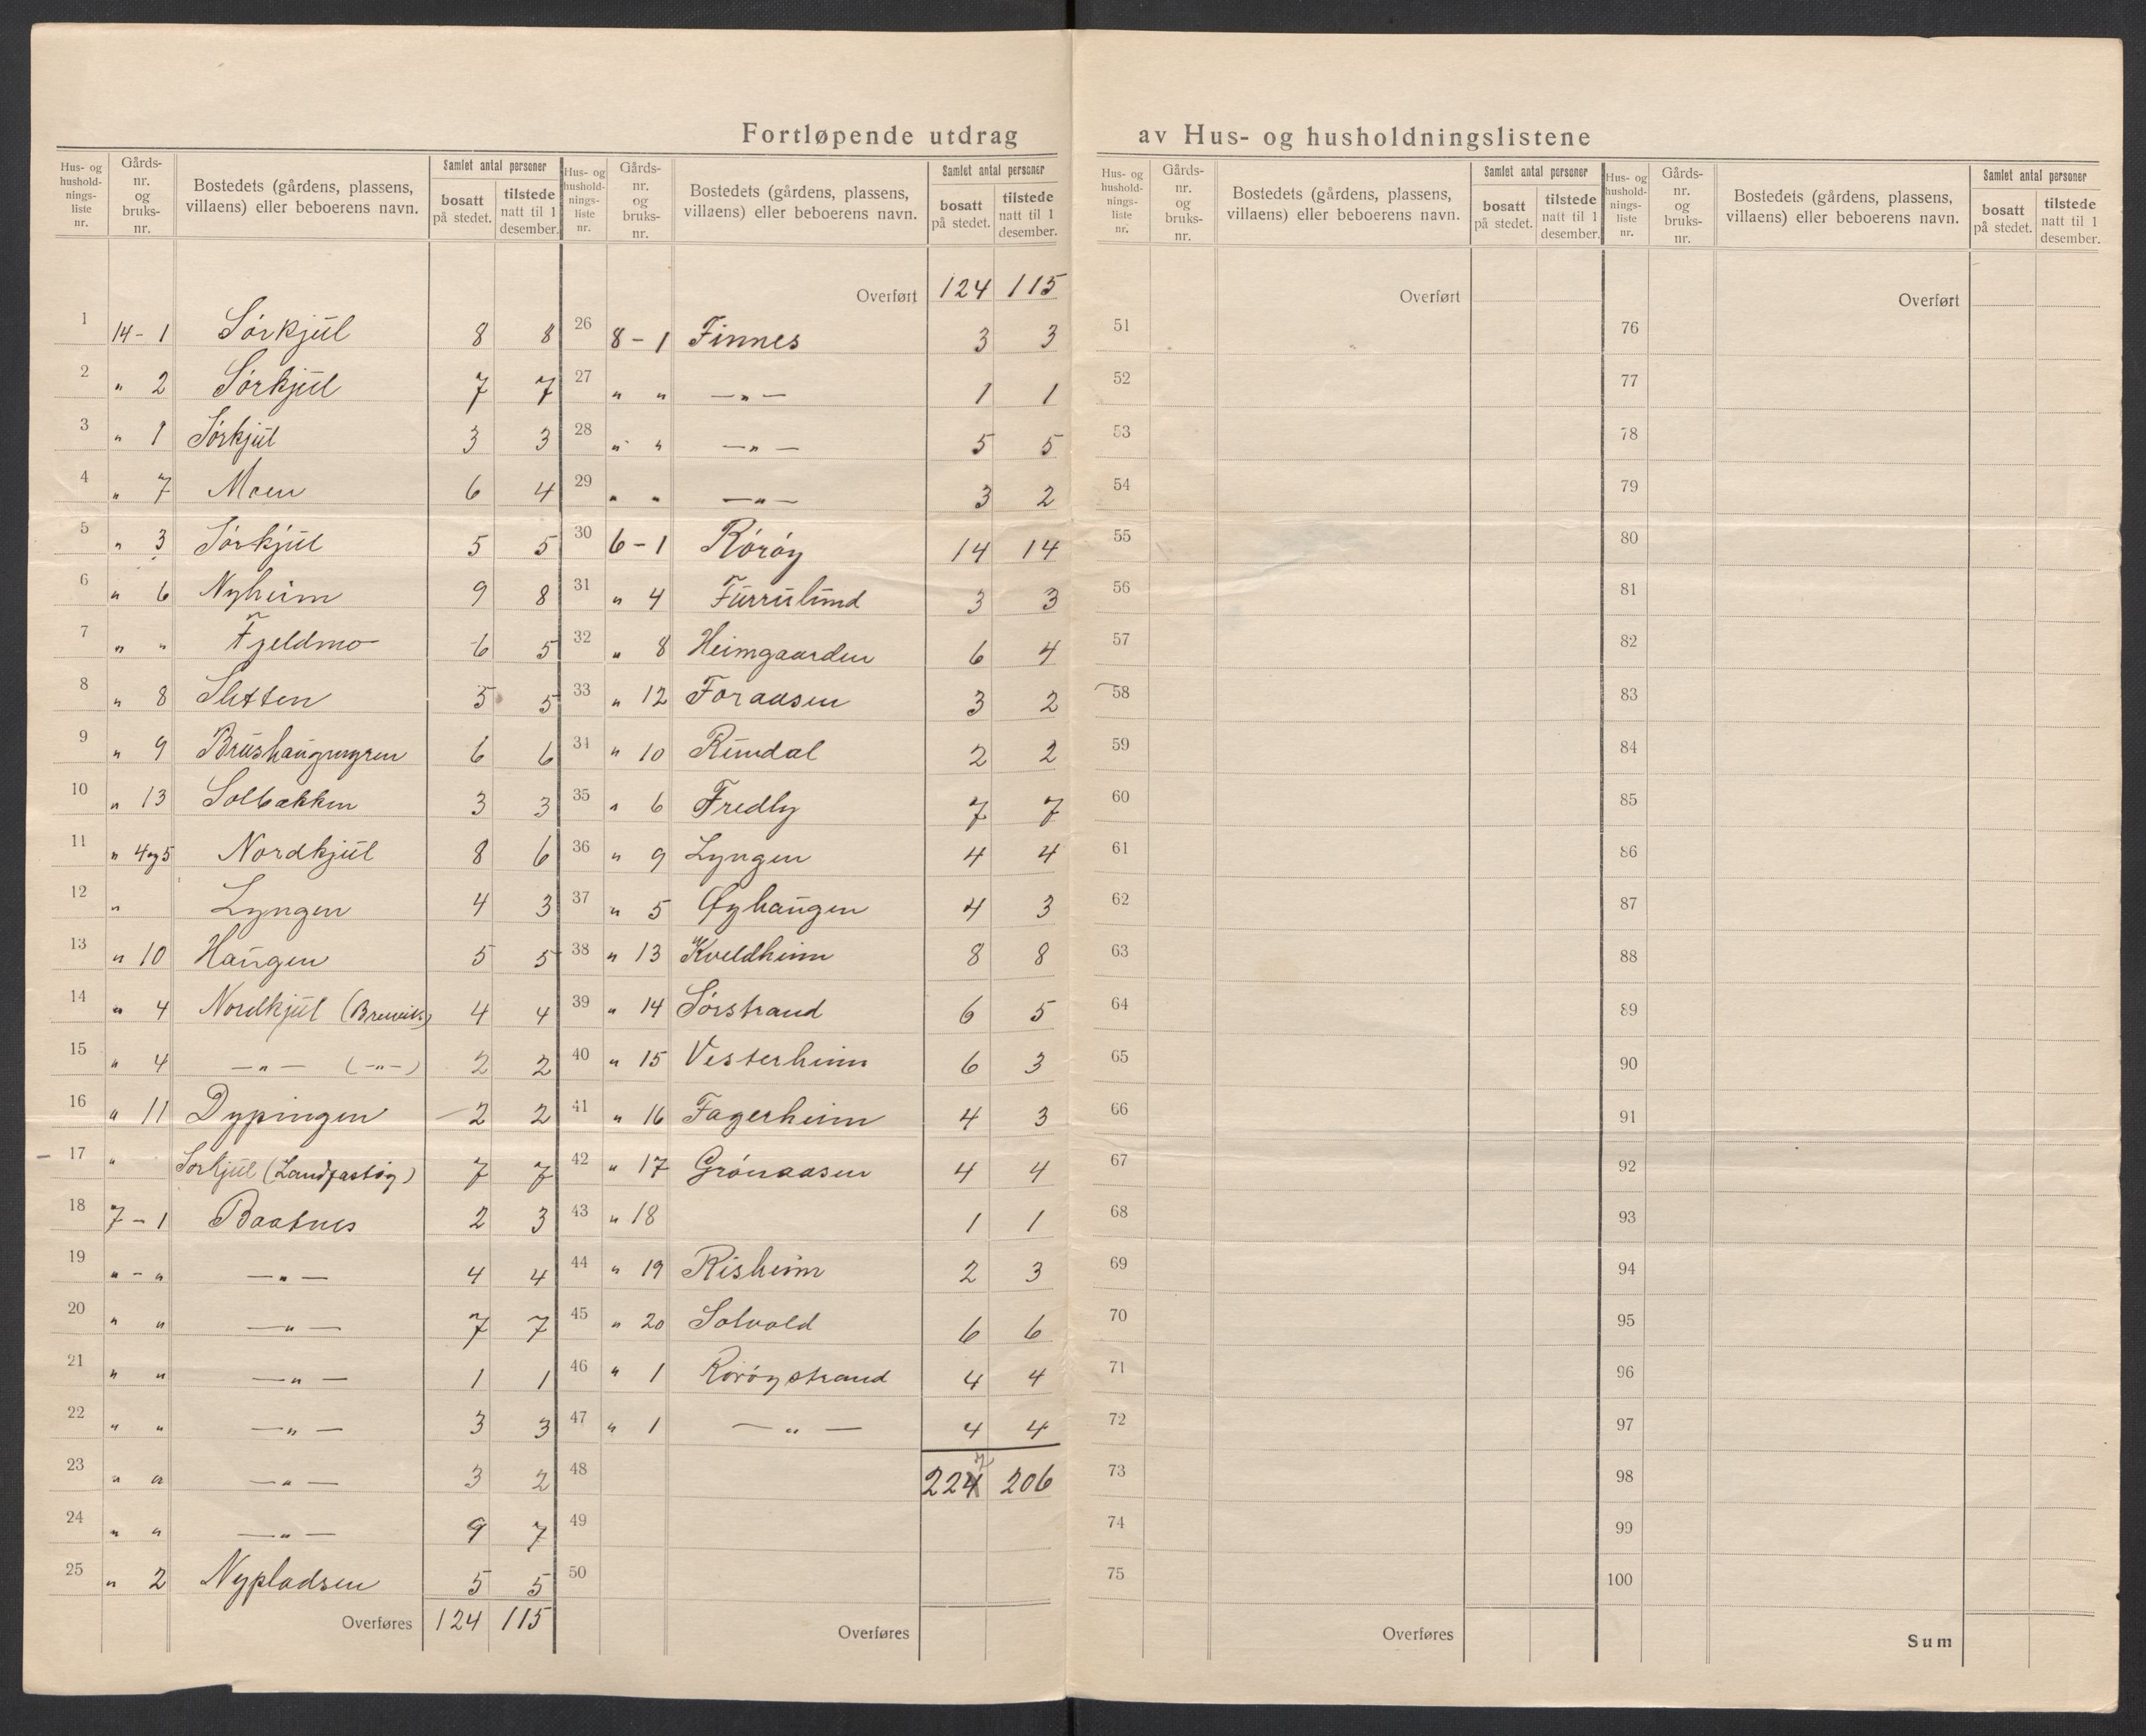 Fortløpende utdrag av Hus- og husholdningslistene
Hus- og husholdnings-liste nr. Gårds-nr. og bruks-nr. Bostedets (gårdens, plassens, villaens) eller beboerens navn. Samlet antal personer bosatt på stedet. tilstede natt til 1 desember.
1 14-1 Sörkjül 8 8
2 " 2 Sörkjül 7 7
3 " 1 Sörkjül 3 3
4 " 7 Moen 6 4
5 " 3 Sörkjül 5 5
6 " 6 Nyheim 9 8
7 " " Fjeldmo 6 5
8 " 8 Sletten 5 5
9 " 9 6 6
10 " 13 Solbakken 3 3
11 " 4og5 Nordkjül 8 6
12 " Lyngen 4 3
13 " 10 Haügen 5 5
14 " 4 Nordkjül 4 4
15 " 4 —"— (-"-) 2 2
16 " 11 Dypingen 2 2
17 " Sörkjül (Landfastöy) 7 7
18 7-1 Baatnes 2 3
19 "-" —"— 4 4
20 " " —"— 7 7
21 " " —"— 1 1
22 " " —"— 3 3
23 " " —"— 3 2
24 " " —"— 9 7
25 " 2 Nypladsen 5 5
Overføres 124 115
Hus- og husholdnings-liste nr. Gårds-nr. og bruks-nr. Bostedets (gårdens, plassens, villaens) eller beboerens navn. Samlet antal personer bosatt på stedet. tilstede natt til 1 desember.
Overført 124 115
26 8-1 Finnes 3 3
27 " " —"— 1 1
28 " " —"— 5 5
29 " " —"— 3 2
30 6-1 Röröy 14 14
31 " 4 Fürrülünd 3 3
32 " 8 Heimgaarden 6 4
33 " 12 Foraasen 3 2
34 " 10 Rümdal 2 2
35 " 6 Fredly 7 7
36 " 9 Lyngen 4 4
37 " 5 Øyhaügen 4 3
38 " 13 Kveldheim 8 8
39 " 14 Sörstrand 6 5
40 " 15 Vesterheim 6 3
41 " 16 Fagerheim 4 3
42 " 17 Grönaasen 4 4
43 " 18 1 1
44 " 19 Risheim 2 3
45 " 20 Solvold 6 6
46 " 1 Röröystrand 4 4
47 " 1 —"— 4 4
48 2247 206
49
50
Overføres
Hus- og husholdnings-liste nr. Gårds-nr. og bruks-nr. Bostedets (gårdens, plassens, villaens) eller beboerens navn. Samlet antal personer bosatt på stedet. tilstede natt til 1 desember.
Overført
51
52
53
54
55
56
57
58
59
60
61
62
63
64
65
66
67
68
69
70
71
72
73
74
75
Overføres
Hus- og husholdnings-liste nr. Gårds-nr. og bruks-nr. Bostedets (gårdens, plassens, villaens) eller beboerens navn. Samlet antal personer bosatt på stedet. tilstede natt til 1 desember.
Overført
76
77
78
79
80
81
82
83
84
85
86
87
88
89
90
91
92
93
94
95
96
97
98
99
100
Sum